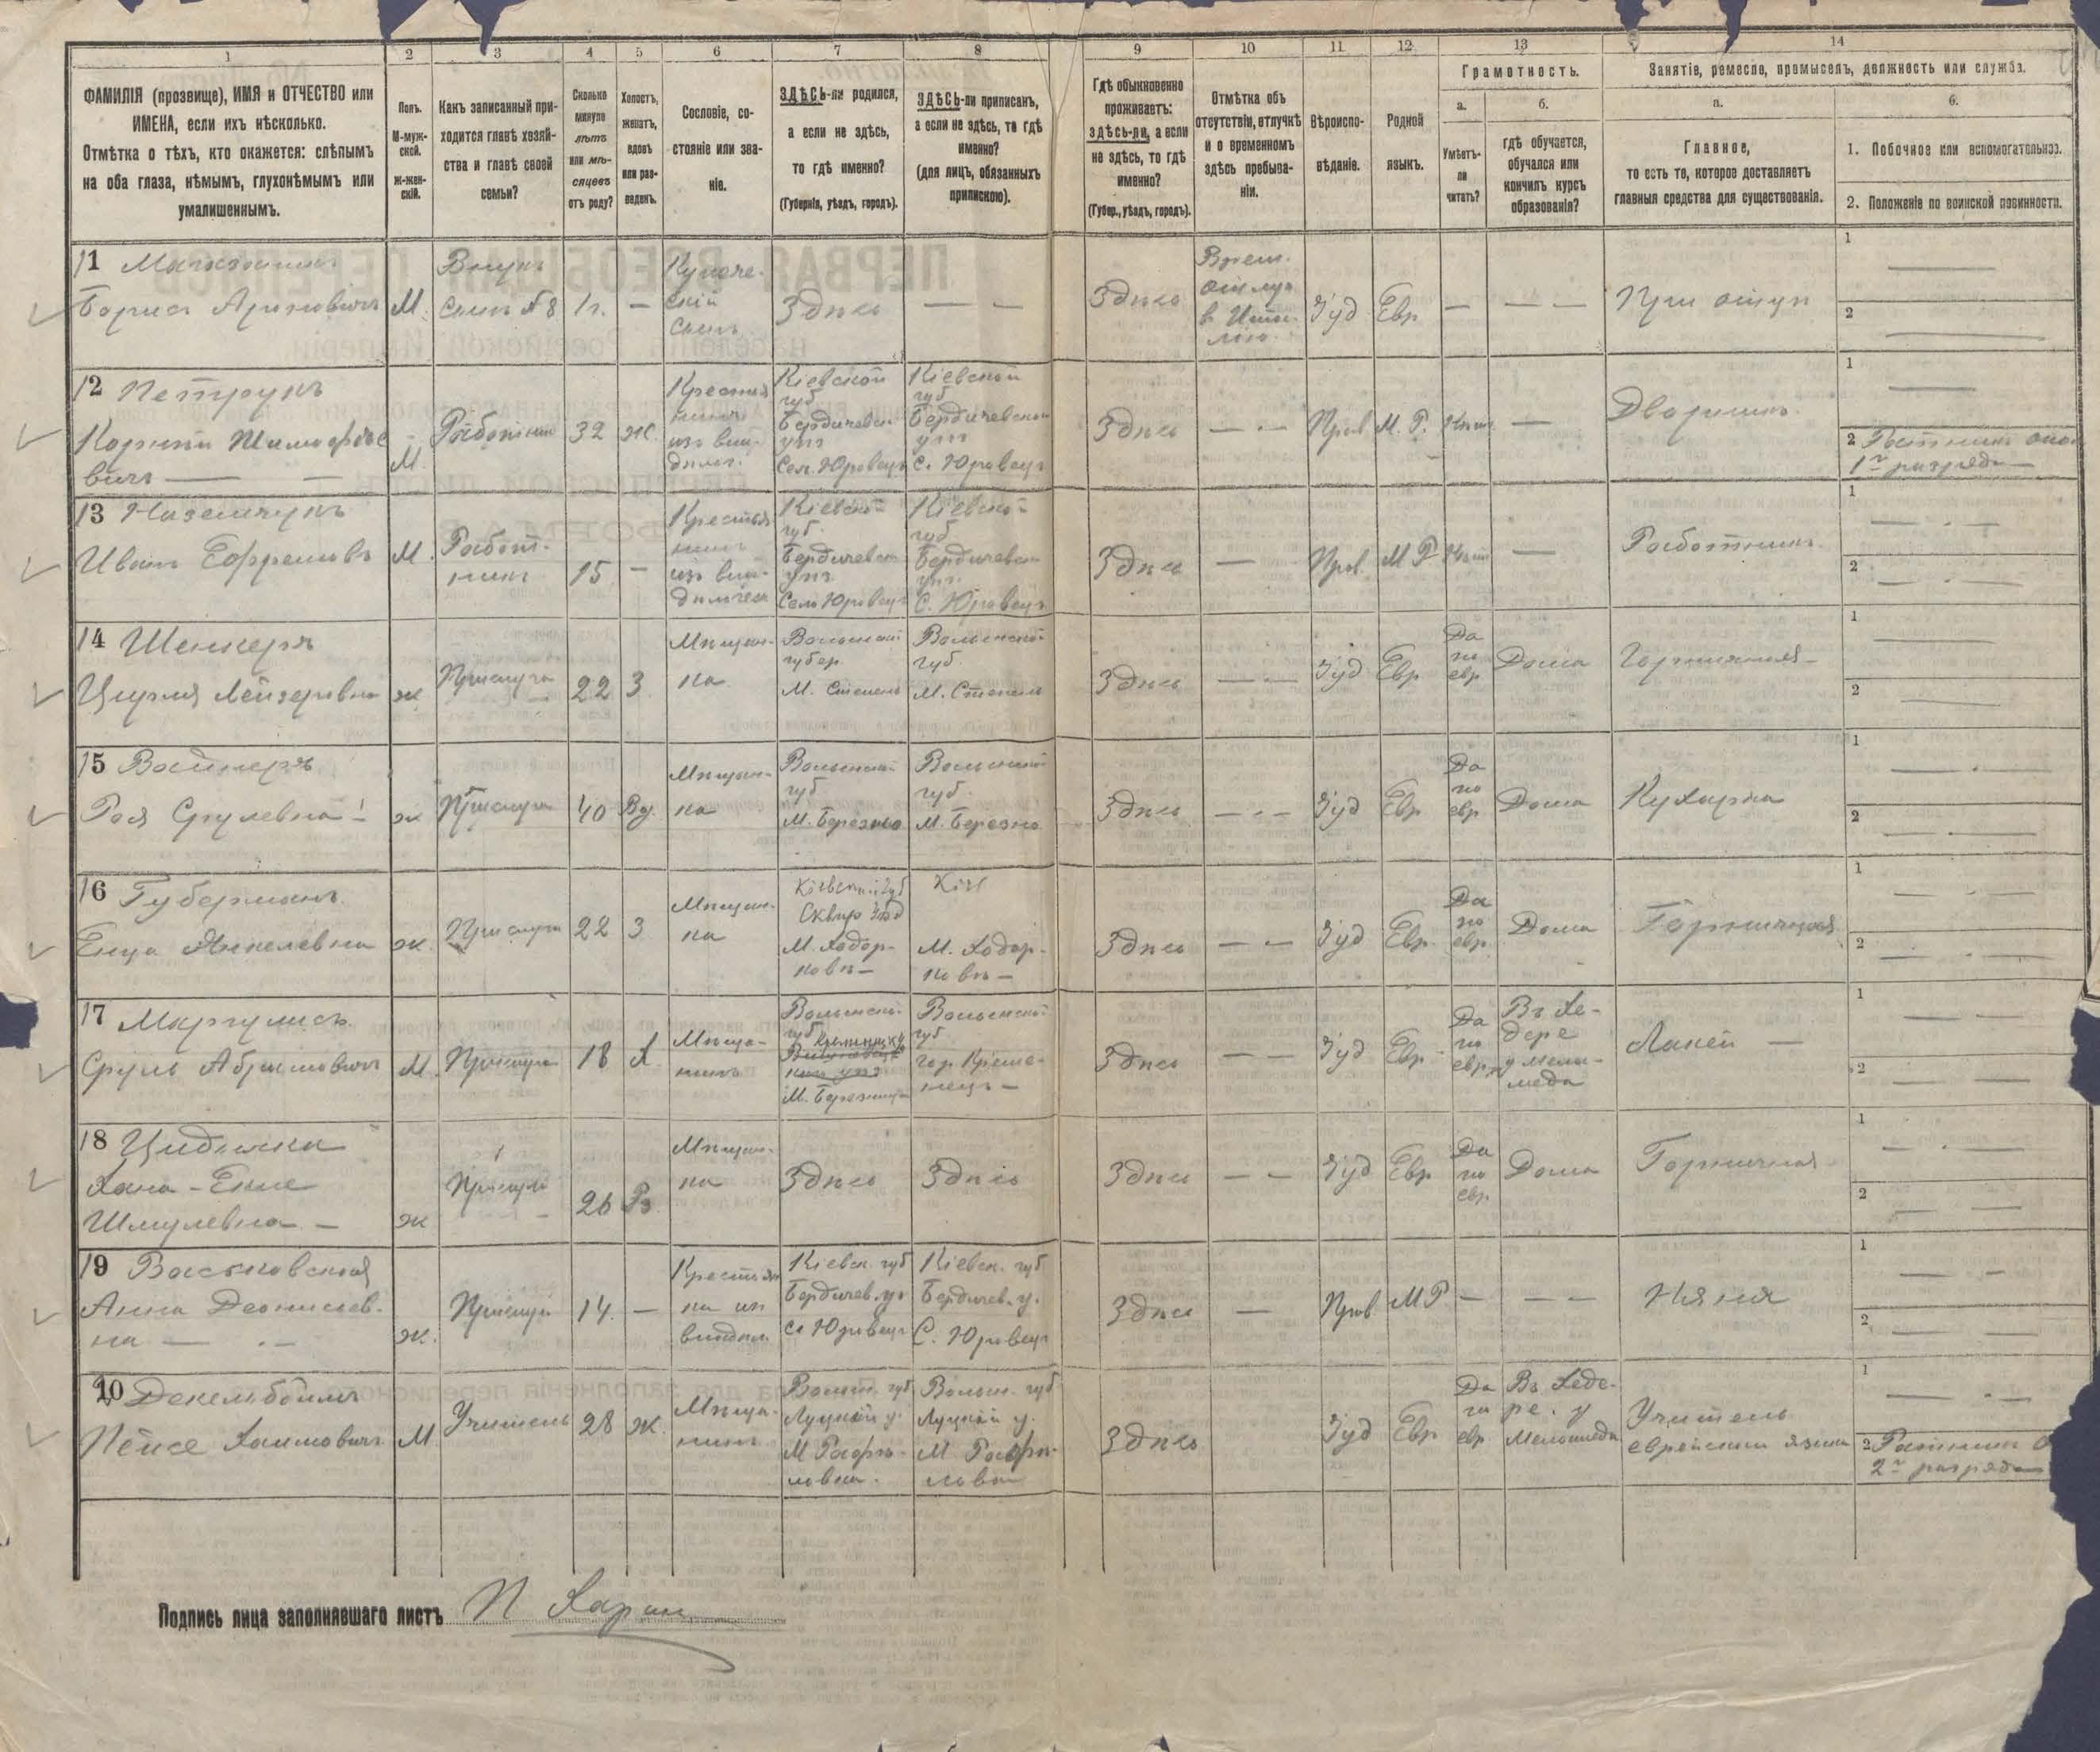 1 2 3 4 5 6 7 8 9 10 11 12 13 14
ФАМИЛІЯ (прозвище), ИМЯ и ОТЧЕСТВО или
ИМЕНА, если ихъ нѣсколько.
Отмѣтка о тѣхъ, кто окажется: слѣпымъ
на оба глаза, нѣмымъ, глухонѣмымъ или
умалишеннымъ.
Полъ.
М-муж-
ской.
ж-жен-
скій.
Какъ записанный при-
ходится главѣ хозяй-
ства и главѣ своей
семьи?
Сколько
минуло
лѣтъ
или мѣ-
сяцевъ
отъ роду?
Холостъ,
женатъ,
вдовъ
или раз-
веденъ.
Сословіе, со-
стояніе или зва-
ніе.
ЗДѢСЬ-ли родился,
а если не здѣсь,
то гдѣ именно?
(Губернія, уѣздъ, городъ).
ЗДѢСЬ-ли приписанъ,
а если не здѣсь, то гдѣ
именно?
(для лицъ, обязанныхъ
припискою).
Гдѣ обыкновенно
проживаетъ:
здѣсь-ли, а если
не здѣсь, то гдѣ
именно?
(Губер., уѣздъ, городъ).
Отмѣтка объ
отсутствіи, отлучкѣ
и о временномъ
здѣсь пребыва-
ніи.
Вѣроиспо-
вѣданіе.
Родной
языкъ.
Грамотность.
а.
Умѣетъ-
ли
читать?
б.
гдѣ обучается,
обучался или
кончилъ курсъ
образованія?
Занятіе, ремесло, промыселъ, должность или служба.
а.
Главное,
то есть то, которое доставляетъ
главныя средства для существованія.
б.
1. Побочное или вспомогательное.
2. Положеніе по воинской повинности.
11
Борисъ Ароновичъ М. Внукъ сынъ №8 1 г. — Купече-
скій
сынъ Здѣсь — — Здѣсь Врем.
отлуч
в Іуд Евр — — — При отцѣ
1
2
12 Петрукъ
Корнѣй Тимофѣе
вичъ — — М. Работник 32 Ж. Крестья
нинъ
из вла-
дѣльч. Кіевской
губ
Бердичевск
уѣз
Сел. Юровецъ Кіевской
губ
Бердичевской
уѣз
С. Юровецъ Здѣсь — - — Прав М. Р. Нѣт — Дворникъ
1
2 Ратникъ опол
1го разряда
13 Наземчукъ
Иванъ Ефремовъ М. Работ-
никъ 15 — Крестья
нинъ
из вла-
дѣльческ Кіевской
губ.
Бердичевск
уѣз.
Село Юровецъ Кіевской
губ
Бердичевск
уѣз.
С. Юровецъ Здѣсь — Прав. М Р Нѣт — Работникъ
1
2
14 Шенкеръ
Цирля Лейзеровна ж. Прислуга 22 З. Мѣщан-
ка Волынской
губер.
М. Степень Волынской
губ.
М. Степень Здѣсь — — Іуд Евр Да
по
евр Дома Горничная
1
2
15 Вайнеръ
Роя Срулевна ж Прислуга 40 Вд. Мѣщан-
ка Волынской
губ
М. Березно Волынской
губ.
М. Березно Здѣсь — - — Іуд Евр Да
по
евр Дома Кухарка
1
2
16 Губерманъ
Енца Янкелевна ж. Прислуга 22 З Мѣщан-
ка Кіевской губ
Сквир уѣзд
М. Ходор-
ковъ — Кіев
М. Ходор-
ковъ — Здѣсь — — Іуд Евр. Да
по
евр. Дома Горничная
1
2
17 Маргулисъ
Сруль Абрамовичъ М. Прислуга 18 Х. Мѣща-
нинъ Волынской
губ Кременецкій
уѣз
М. Волынской
губ
гор. Креме-
нецъ — Здѣсь — — Іуд Евр. Да
по
евр. Въ Хе-
дере
у мела-
меда Лакей —
1
2
18
Хана-Ение
Шмулевна — ж Прислуга 26 Рз Мѣщан-
ка Здѣсь Здѣсь Здѣсь — — Іуд Евр Да
по
евр. Дома Горничная
1
2
19 Васьковская
Анна Деонисьев-
на — - — ж. Прислуга 14. — Крестьян
ка из
владѣл. Кіевск. губ
Бердичев. уѣ
Сѣ Юровецъ Кіевск. губ
Бердичев. у.
С. Юровецъ Здѣсь — Прав. М Р. — — — Няня
1
2
20 Декельбоймъ
Пейсе Хаимовичъ М Учитель 28 Ж. Мѣща-
нинъ Волын. губ
Луцкой у.
М Рафа-
ловка. Волын. губ
Луцкой у.
М. Рафа-
ловка Здѣсь Іуд Евр Да
по
евр Въ Хеде-
ре. у
меламеда Учитель
еврейскаго языка
1
2 Ратникъ О
2го разряда
Подпись лица заполнявшаго листъ П Харик